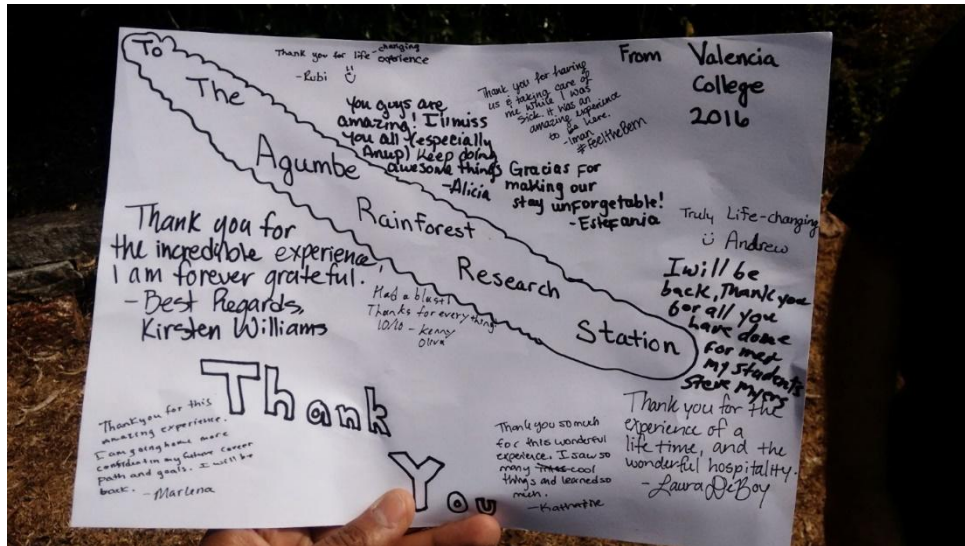 To
The
Agumbe
Rainforest
Research
Station
From Valencia
College
2016
Thank you for life-changing
experience
-Rubi
You guys are
amazing! I'll miss
you all (especially
Anup) Keep doing
awesome things
-Alicia
Thank you for having
us & taking care of
me while I was
sick. It was an
amazing experience
to be here.
-Iman
#FeelTheBern
Gracias For
making our
stay unforgetable!
-Estefania
Truly Life-changing
Andrew
Thank you for
the incredible experience,
I am forever grateful.
-Best Regards,
Kirsten Williams
Had a blast!
Thanks for everything
10/10 - Kenny
Oliva
I will be
back, Thank you
for all you
have done
for me &
my students
Steve Myers
Thank
You
Thank you for this
amazing experience.
I am going home more
confident in my future career
path and goals. I will be
back.
-Marlena
Thank you so much
for this wonderful
experience. I saw so
many cool
things and learned so
much.
-Katharine
Thank you for the
experience of a
life time, and the
wonderful hospitality.
-Laura DeBoy